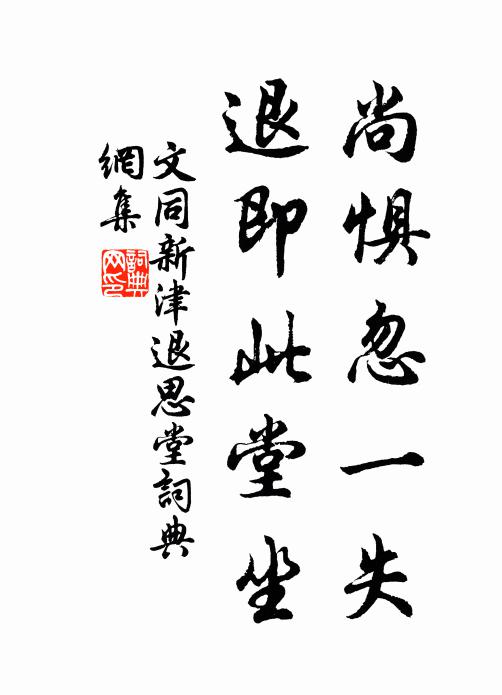 尚懼忽一失
退即此堂坐
文同新津退思堂詞典
網集
詞典
网印